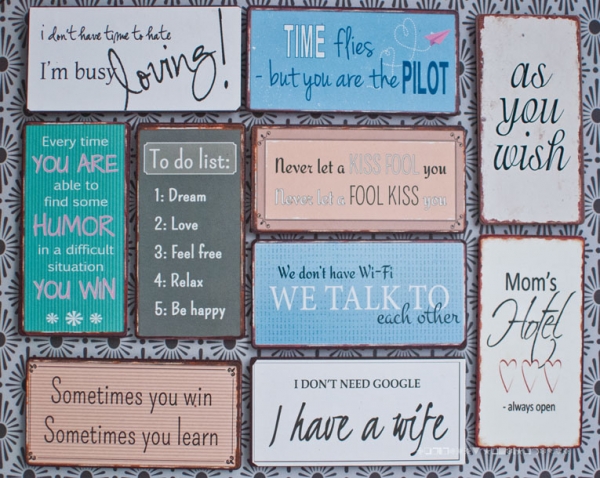 i don't have time to hate
I'm busy loving!
TIME flies
- but you are the PILOT
as
you
wish
Every time
YOU ARE
able to
find some
HUMOR
in a difficult
situation
YOU WIN
To do list:
1: Dream
2: Love
3: Feel free
4: Relax
5: Be happy
Never let a KISS FOOL you
Never let a FOOL KISS you
We don't have Wi-Fi
WE TALK TO
each other
Mom's
Hotel
- always open
Sometimes you win
Sometimes you learn
I DON'T NEED GOOGLE
I have a wife